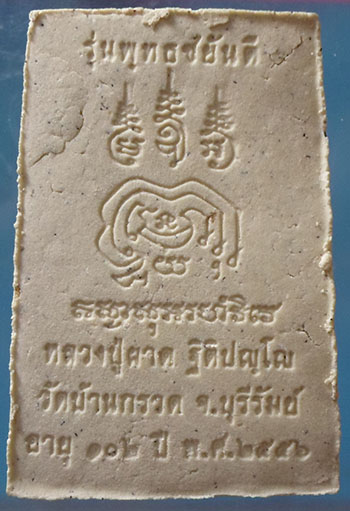 รุ่นพุทธชยันตี
หลวงปู่ผาด ฐิติปญฺโญ
วัดบ้านกรวด จ.บุรีรัมย์
อายุ ๑๐๒ ปี พ.ศ.๒๕๕๖